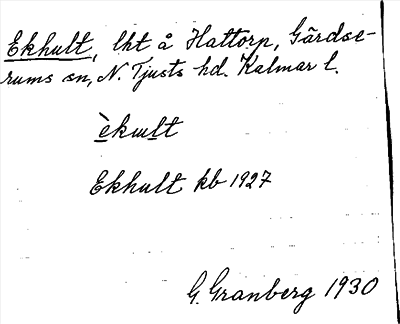 Ekhult, lht å Hattorp, Gärdse-
rums sn, N. Tjusts hd. Kalmar l.
èkɯlt
Ekhult kb 1927
G. Granberg 1930